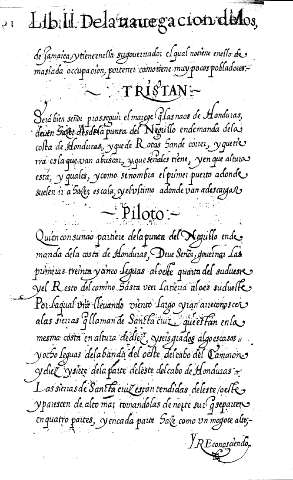 Lib. II. De la navegacion delos,
de Jamaica, y tiene en ella su governador el qual no tiene en ello de
masiada ocupacion, por tener como tiene muy pocos pobladores.
TRISTAN
Será bien señor prosseguir el viaje q̃ las naos de Honduras,
deven hazer desde la punta del Neguillo en demanda dela
costa de Honduras, y que de Rotas han de correr, y que tie
rra es la que van a buscar, y que señales tiene, y en que altura
está, y quales, y como se nombra el primer puerto adonde
suelen ir a hazer escala, y el ultimo adonde van a descargar.
Piloto
Quien con su nao partiere de la punta del Neguillo en de
manda dela costa de Honduras, Deve Señor, governar las
primeras treinta y cinco leguas al oeste quarta del sudueste
y el Resto del camino hasta ver la tierra al oes sudueste
Por la qual via llevando viento largo yran a reconoscer
a las sierras q̃ llaman de Sancta cruz, que están en la
mesma costa en altura de diez, y seis grados algo escasos
y ocho leguas de la banda del oeste del cabo del Camaron
y diez, y siete de la parte del oeste del cabo de Honduras
Las sierras de Sancta cruz están tendidas del este, oeste
y parescen de alto mar tomandolas de norte sur q̃ se parten
en quatro partes, y en cada parte haze como un mogote alto,
y Reconosciendo,